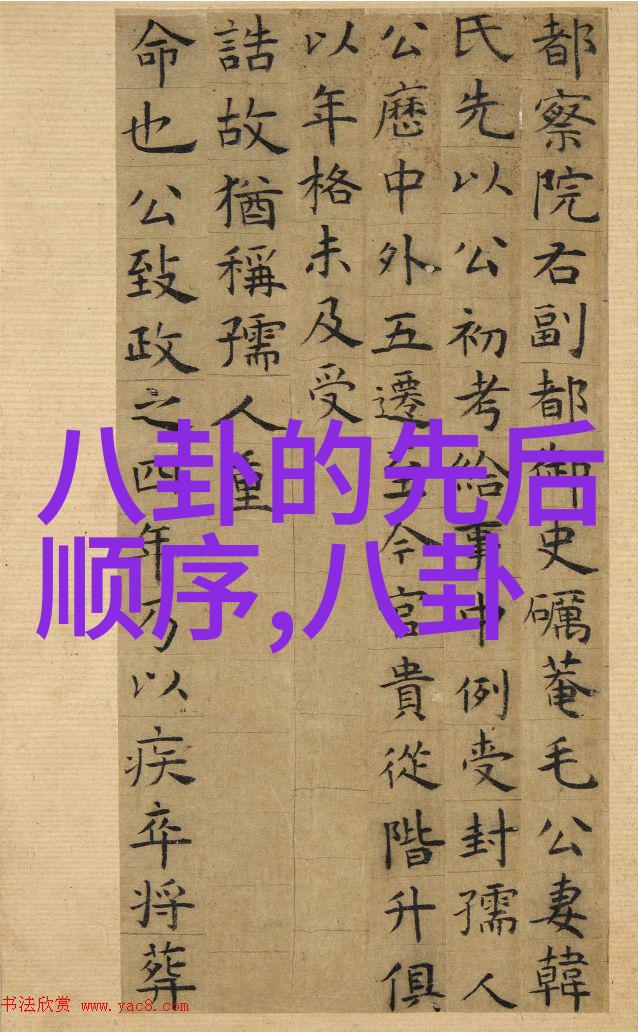 都察院右副都御史礪菴毛公妻韓
氏先以公初考給事中例受封孺人
公歷中外五遷至今官貴從階升俱
以年格未及受
誥故猶稱孺人重
命也公致政之四年乃以疾卒将葬
八卦的先后
顺序,八卦
书法欣赏 www.yac8.com